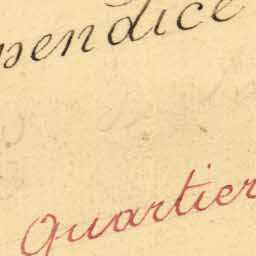 pendice
Quartier